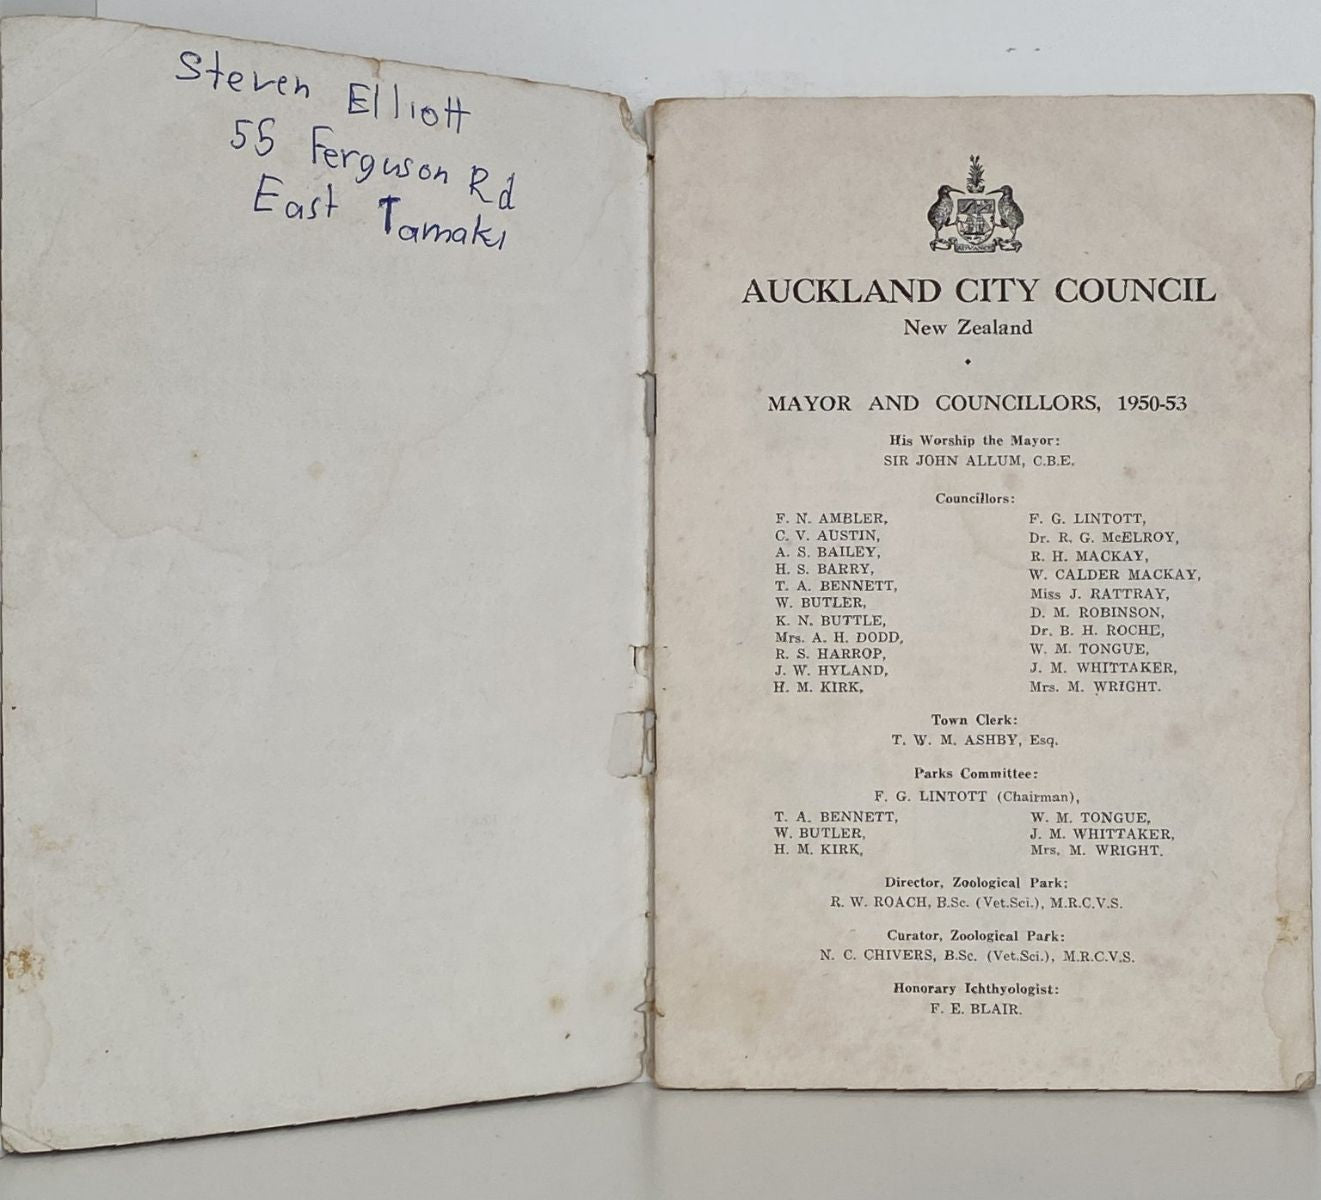 Steven Elliott
55 Ferguson Rd
East Tamaki
ADVANCE
AUCKLAND CITY COUNCIL
New Zealand
MAYOR AND COUNCILLORS, 1950-53
His Worship the Mayor:
SIR JOHN ALLUM, C.B.E.
Councillors:
F. N. AMBLER,
C. V. AUSTIN,
A. S. BAILEY,
H. S. BARRY,
T. A. BENNETT,
W. BUTLER,
K. N. BUTTLE,
Mrs. A. H. DODD,
R. S. HARROP,
J. W. HYLAND,
H. M. KIRK,
F. G. LINTOTT,
Dr. R. G. McELROY,
R. H. MACKAY,
W. CALDER MACKAY,
Miss J. RATTRAY,
D. M. ROBINSON,
Dr. B. H. ROCHE,
W. M. TONGUE,
J. M. WHITTAKER,
Mrs. M. WRIGHT.
Town Clerk:
T. W. M. ASHBY, Esq.
Parks Committee:
F. G. LINTOTT (Chairman),
T. A. BENNETT,
W. BUTLER,
H. M. KIRK,
W. M. TONGUE,
J. M. WHITTAKER,
Mrs. M. WRIGHT.
Director, Zoological Park:
R. W. ROACH, B.Sc. (Vet.Sci.), M.R.C.V.S.
Curator, Zoological Park:
N. C. CHIVERS, B.Sc. (Vet.Sci.), M.R.C.V.S.
Honorary Ichthyologist:
F. E. BLAIR.